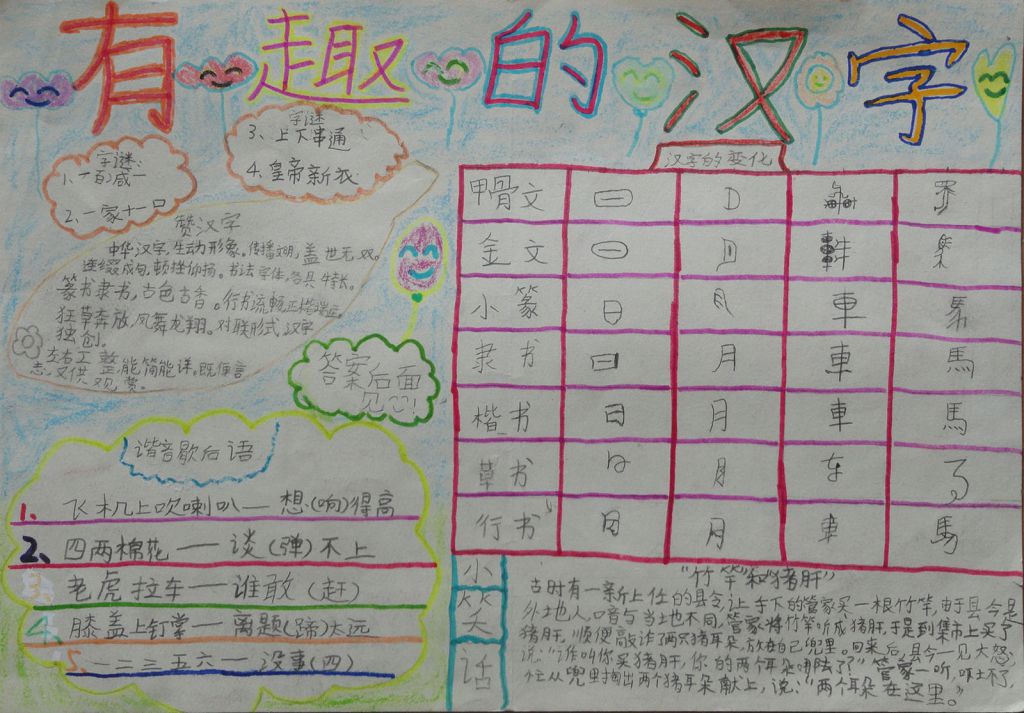 有趣的汉字
字谜:
1、一百减一
2、一家十一口
字谜
3、上下串通
4、皇帝新衣
赞汉字
中华汉字,生动形象。传播文明,盖世无双。
连缀成句,顿挫抑扬。书法字体,各具特长。
篆书隶书,古色古香。行书流畅,正楷端庄。
狂草奔放,凤舞龙翔。对联形式,汉字
独创。
左右工整,能简能详。既便言
志,又供观赏。
答案后面
见
谐音歇后语
1、飞机上吹喇叭——想(响)得高
2、四两棉花——谈(弹)不上
3、老虎拉车——谁敢(赶)
4、膝盖上钉掌——离题(蹄)太远
5、一二三五六——没事(四)
汉字的变化
甲骨文
金文
小篆
隶书 日 月 車 馬
楷书 日 月 車 馬
草书
行书 日 月 車 馬
小笑话
"竹竿"和"猪肝"
古时有一新上任的县令,让手下的管家买一根竹竿,由于县令是
外土也人,口音与当土也不同,管家将竹竿听成猪肝,于是到集市上买了
猪肝,顺便敲诈了两只猪耳朵,放在自己兜里。回来后,县令一见大怒,
说:"谁叫你买猪肝,你的两个耳朵哪去了?"管家一听,吓坏了,
忙从兜里掏出两个猪耳朵献上,说:"两个耳朵在这里。"